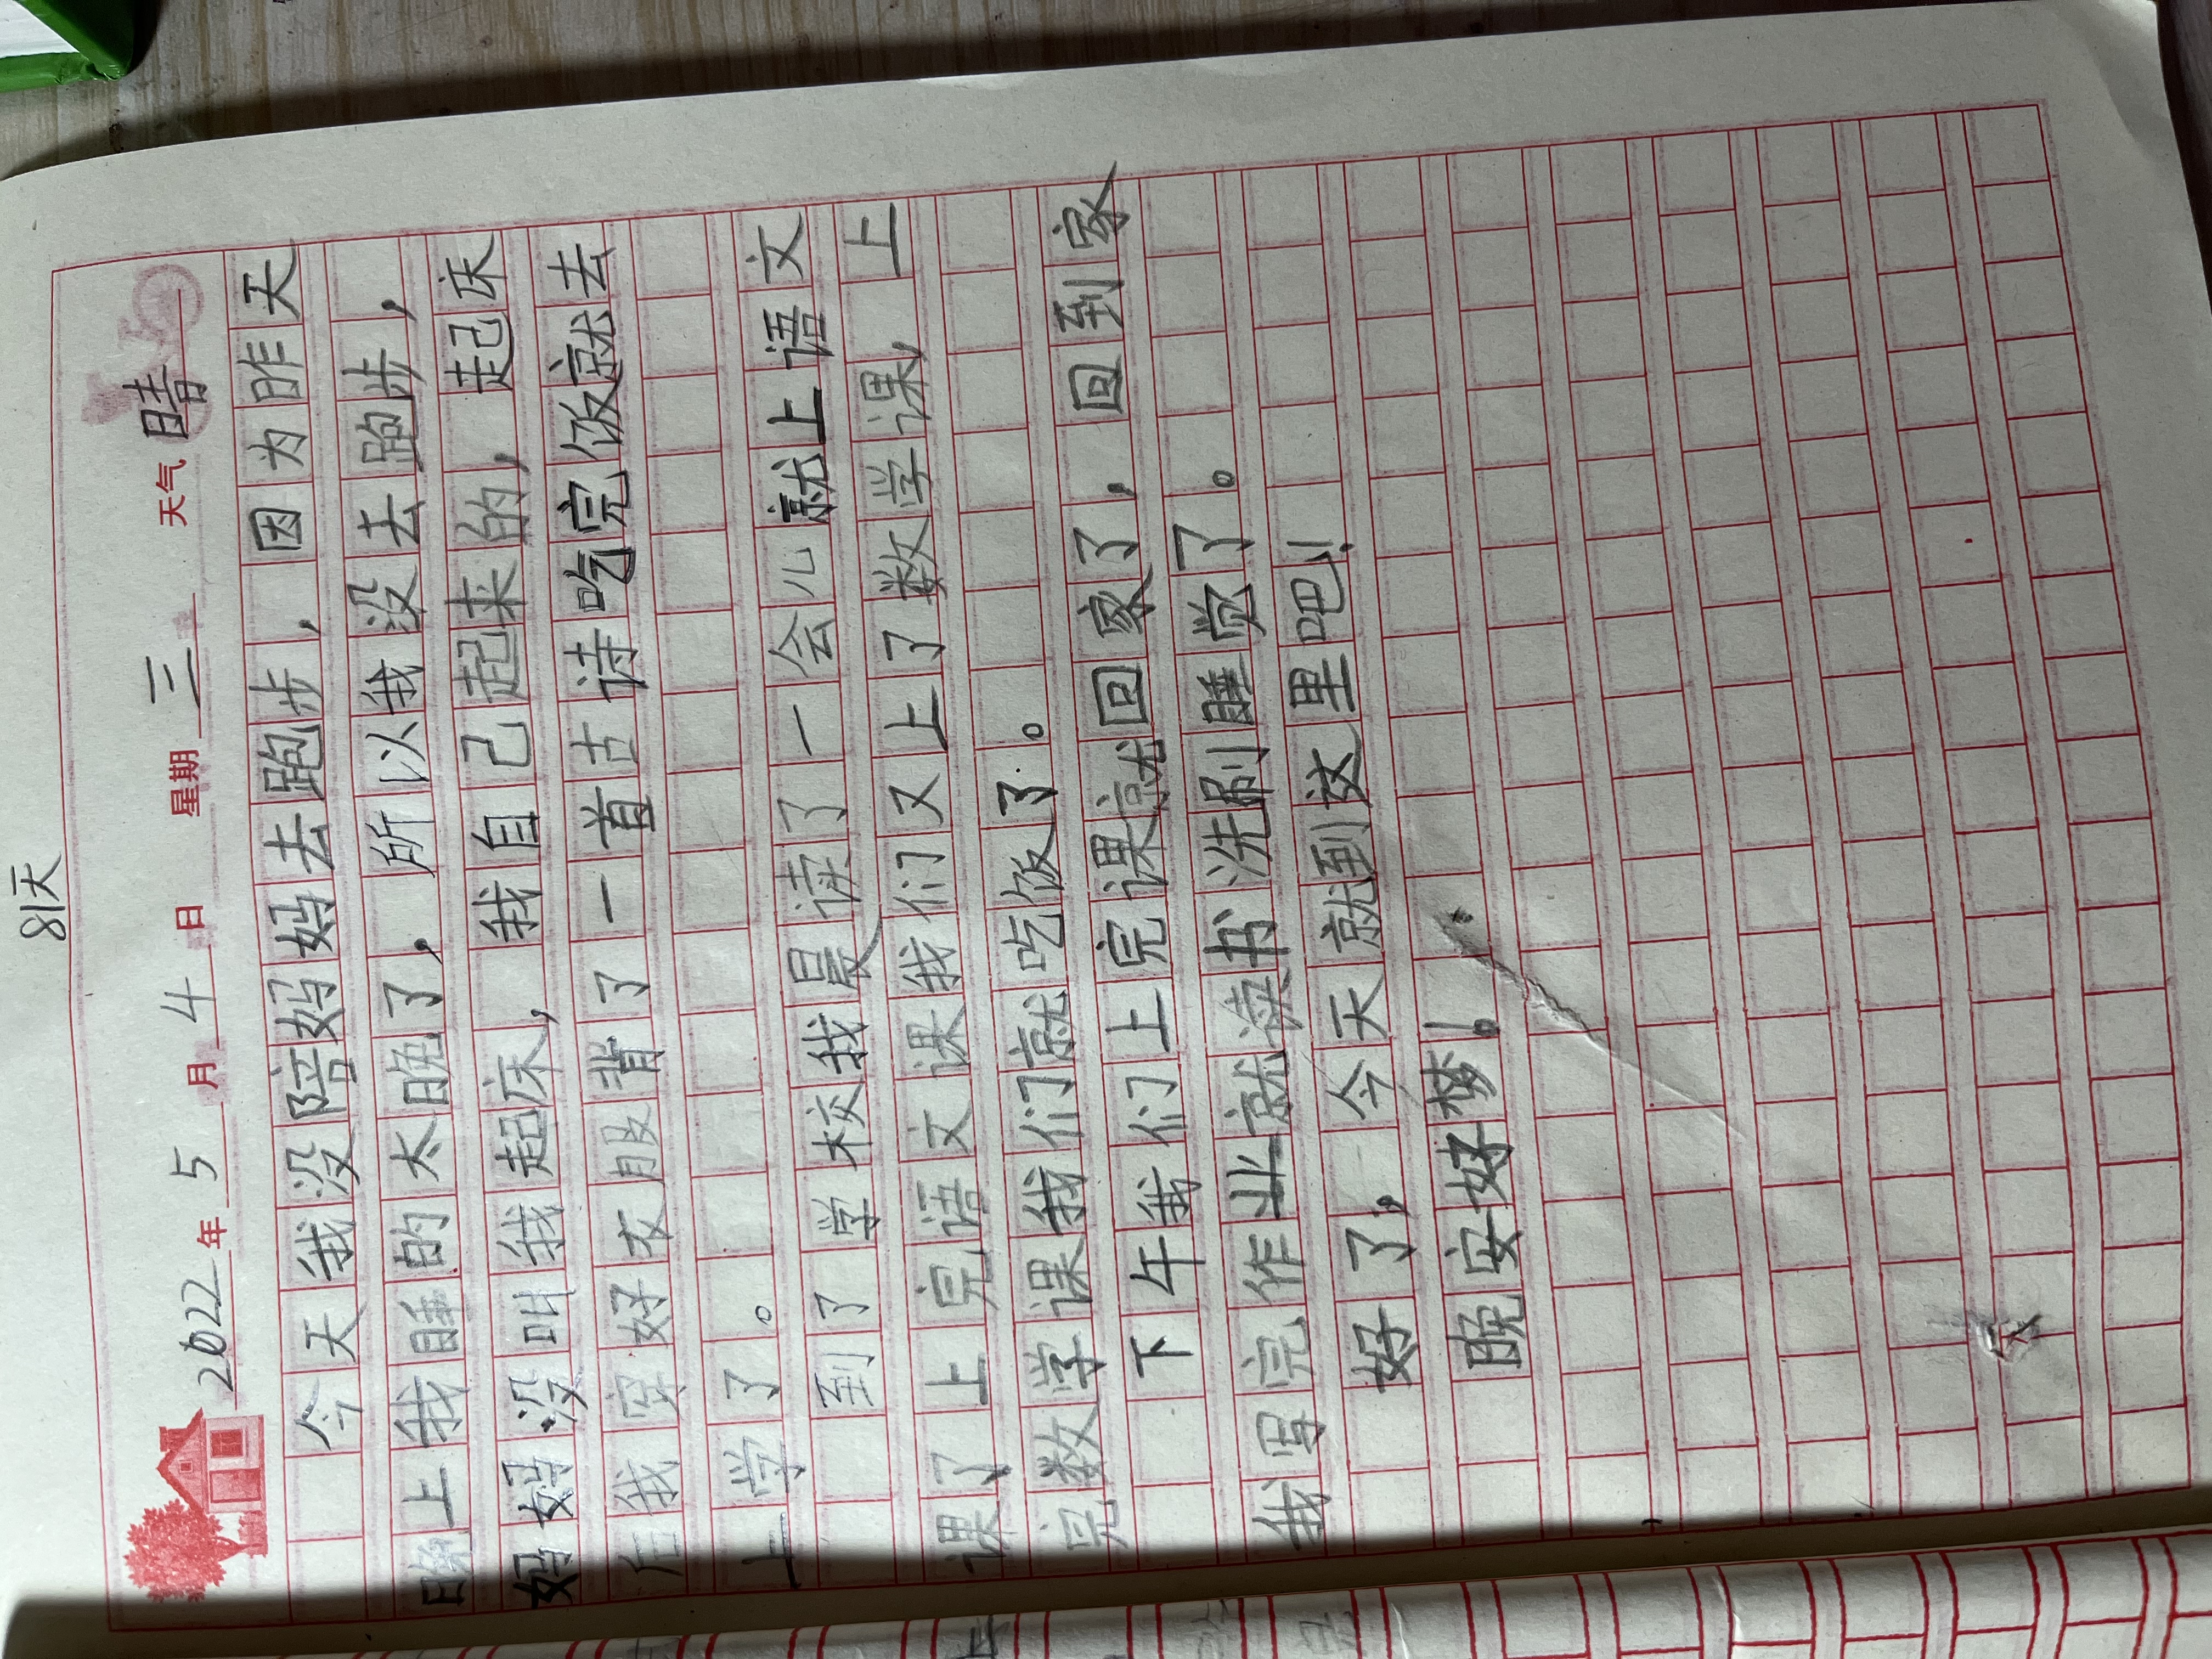 81天
2022年5月4日 星期三 天气晴
今天我没陪妈妈去跑步，因为昨天
晚上我睡的太晚了，所以我没去跑步，
妈妈没叫我起床，我自己起来的，起床
后我穿好衣服背了一首古诗吃完饭就去
上学了。
到了学校我晨读了一会儿就上语文
课了上完语文课我们又上了数学课，上
完数学课我们就吃饭了。
下午我们上完课就回家了，回到家
我写完作业就读书洗刷睡觉了。
好了，今天就到这里吧！
晚安好梦！